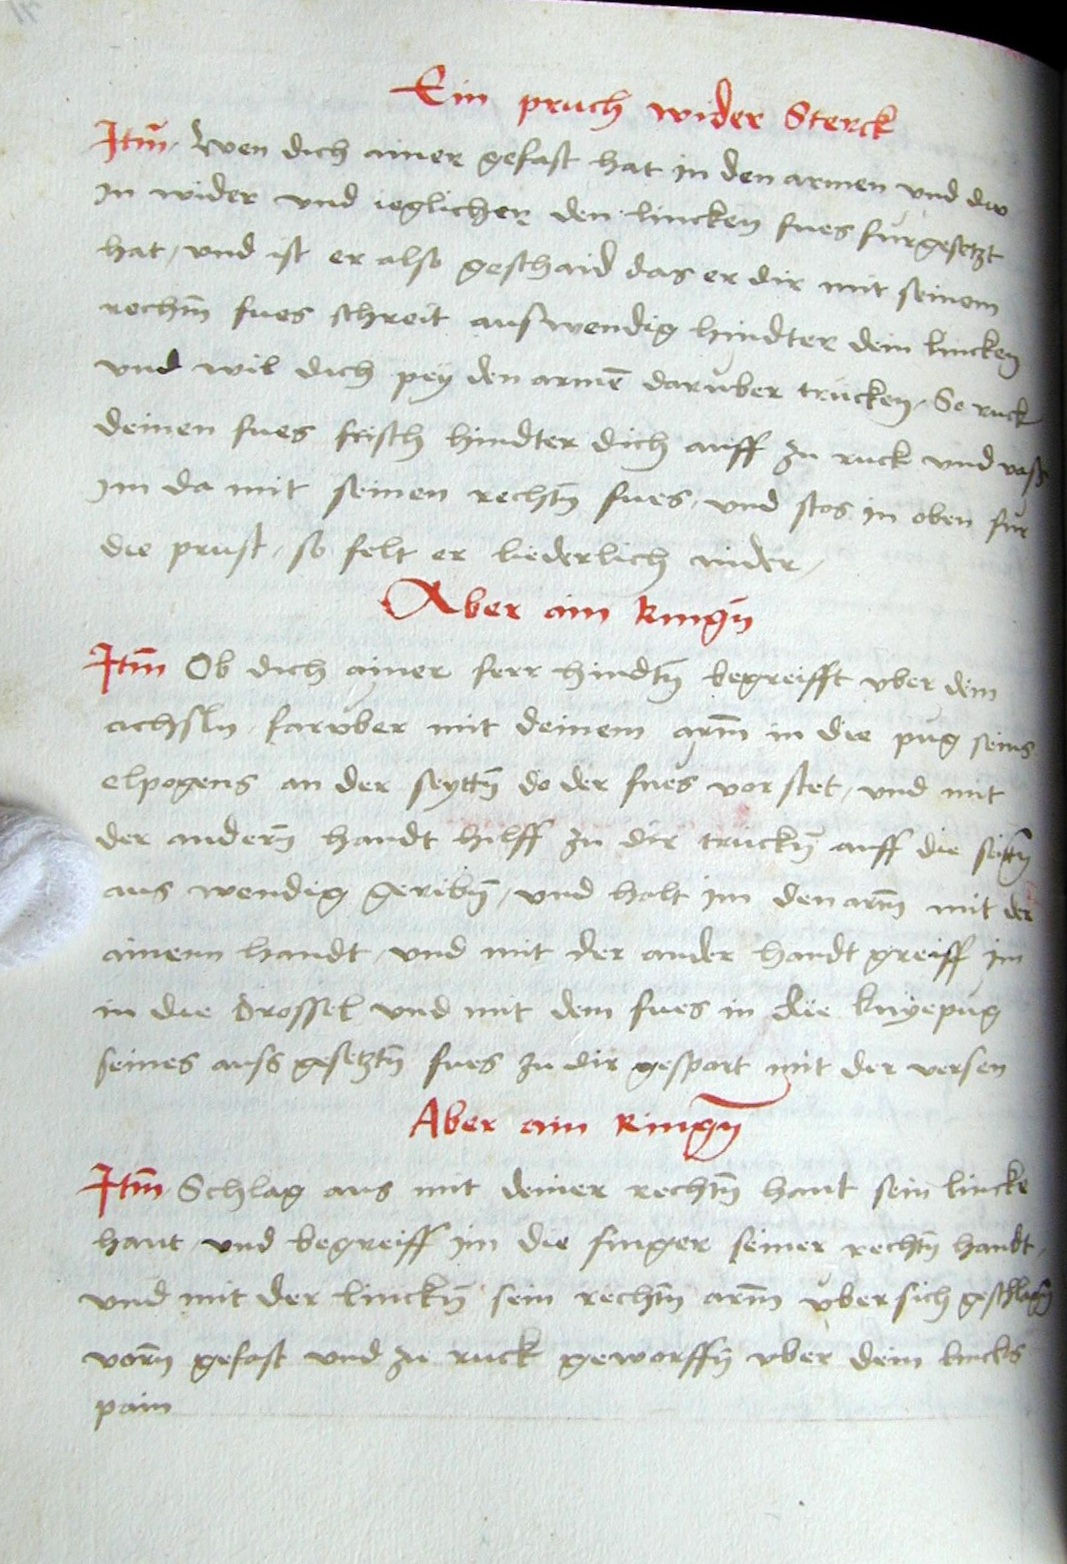 Ein pruch wider Sterck
Itm̄ Wen dich ainer gefast hat in den armen vnd dw
in wider vnd ieglicher den lincken fues fürgesetzt
hat / vnd ist er also geschaid das er dir mit seinem
rechtn̄ fues schreit auswendig hindter dein lincken
vnd wil dich pey den armē darüber trücken / So ruck
deinen fues frisch hindter dich auff zu ruck vnd vass
im da mit seinen rechtn̄ fues / vnd stos in oben für
die prust / so felt er liederlich nider /
Aber ain Ringn̄
Itm̄ Ob dich ainer ferr hindtn̄ begreifft vber dein
achsln / far vber mit deinem arm̄ in die püg seins
elpogens an der seyttn̄ do der fues vor stet / vnd mit
der andern̄ handt hilff zu dir truckn̄ auff die seittn̄
aus wendig geribn̄ / vnd halt im den arm̄ mit der
ainenn handt / vnd mit der ander handt greiff im
in die drossel vnd mit dem fues in die knyepüg
seines auss gesetztn̄ fues zu dir gesport mit der versen
Aber ain Ringn̄
Itm̄ Schlag aus mit deiner rechtn̄ hant sein lincke
hant / vnd begreiff im die finger seiner rechtn̄ handt /
vnd mit der linckn̄ sein rechtn̄ arm̄ vber sich geschlagn̄
vorn̄ gefast vnd zu ruck geworffn̄ vber dein lincks
pain